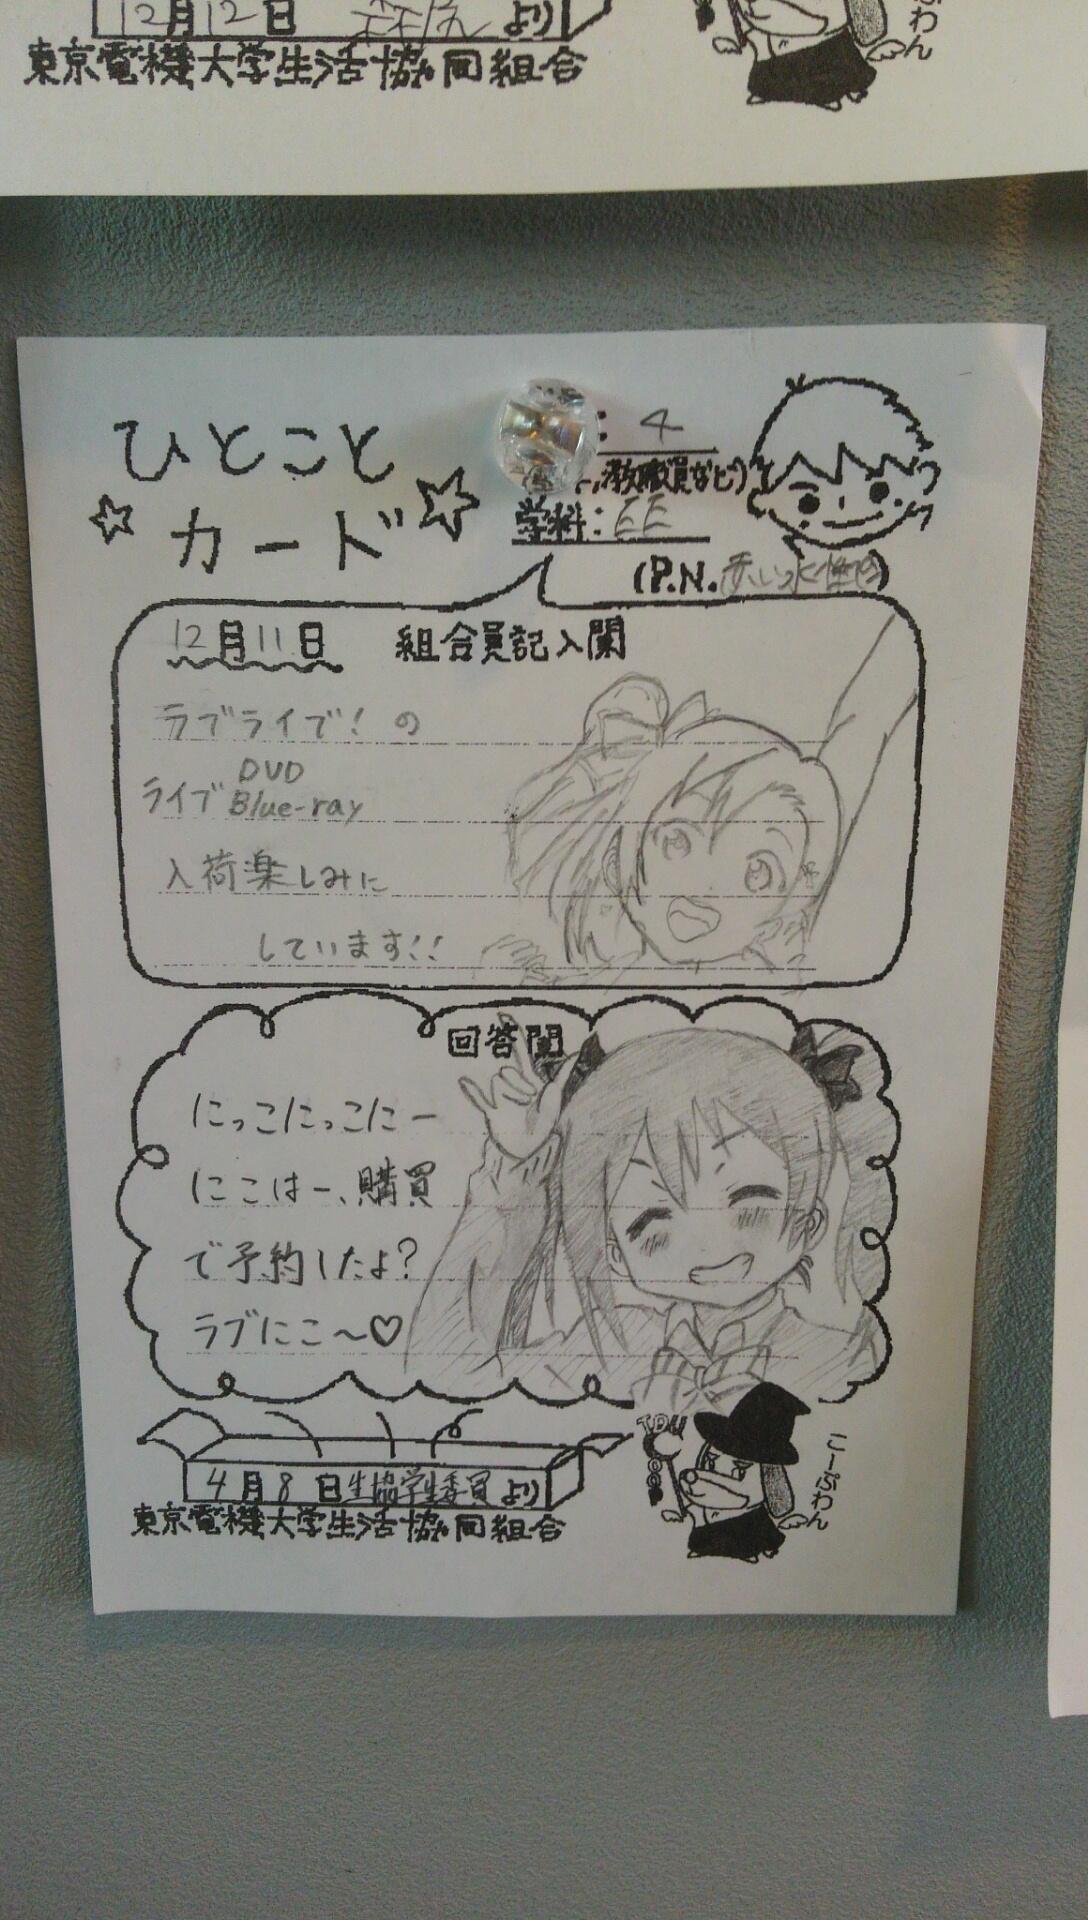 12月12日 より
東京電機大学生活協同組合
ひとこと
カード
: 4
教職員など)
学科:EE
(P.N.赤い水性
12月11日 組合員記入欄
ラブライブ!の
ライブ DVD
Blue-ray
入荷楽しみに
しています!!
回答欄
にっこにっこにー
にこはー、購買
で予約したよ?
ラブにこ〜♡
TDU
こーぷわん
4月8日生協学生委員より
東京電機大学生活協同組合